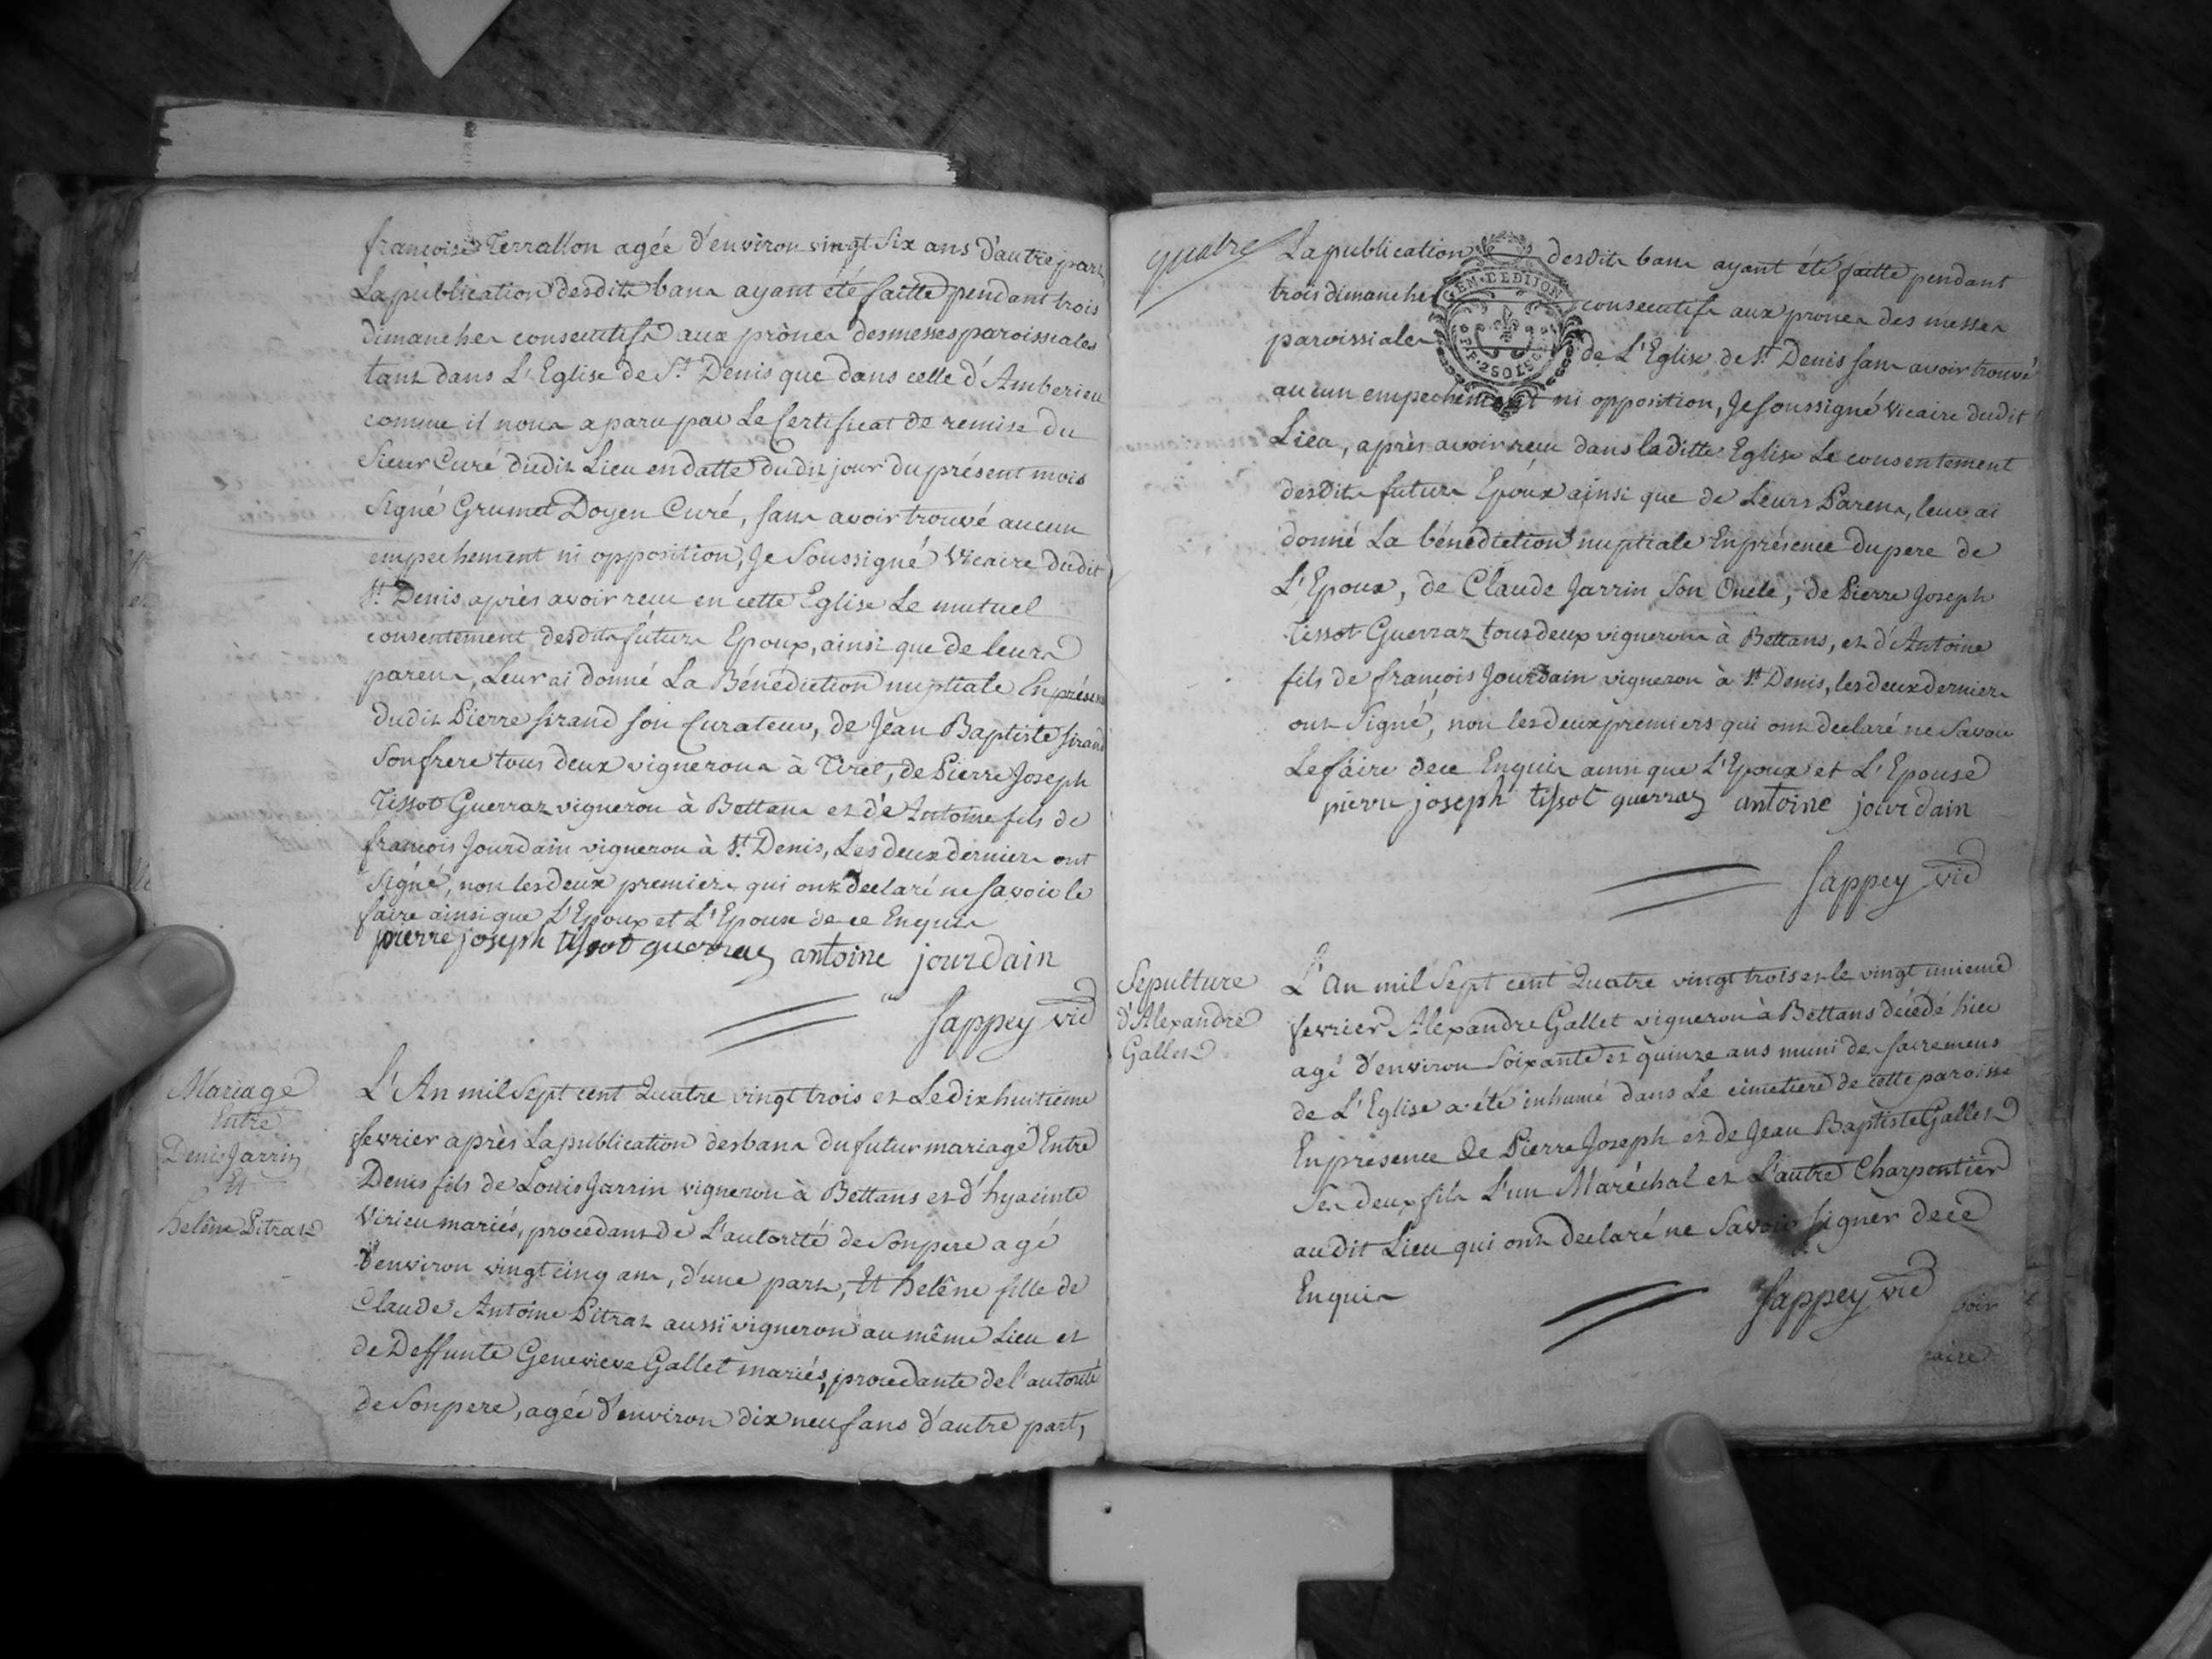 françoise Terrallon agée d'environ vingt six ans d'autre part,
La publication desdits bans ayant été faitte pendant trois
dimanches consecutifs aux prônes des messes paroissiales
tant dans L'Eglise de St Denis que dans celle d'Amberieu
comme il nous a paru par Le Certificat de remise du
Sieur Curé dudit Lieu en datte dudit jour du présent mois
Signé Grumet Doyen Curé, sans avoir trouvé aucun
empechement ni opposition, Je Soussigné Vicaire dudit
St Denis après avoir recu en cette Eglise Le mutuel
consentement desdits futurs Epoux, ainsi que de leurs
parens, Leur ai donné La Bénédiction nuptiale En présence
dudit Pierre sirand son Curateur, de Jean Baptiste sirand
Son frere tous deux vignerons à Tiret, de Pierre Joseph
Tissot Guerraz vigneron à Bettans et d'Antoine fils de
françois Jourdain vigneron à St Denis, Les deux derniers ont
Signé, non les deux premiers qui ont declaré ne savoir le
faire ainsi que L'Epoux et L'Epouse de ce Enquis
pierre joseph tissot guerraz antoine jourdain
Sappey vic
Mariage
Entre
Denis Jarrin
Et
helêne Pitrat
L'An mil Sept cent Quatre vingt trois et Le dix huitieme
fevrier après La publication des bans du futur mariage Entre
Denis fils de Louis Jarrin vigneron à Bettans et d'hyacinte
Virieu mariés, procedant de L'autorité de Son pere agé
d'environ vingt cinq ans, d'une part, Et helêne fille de
Claude Antoine Pitrat aussi vigneron au même Lieu et
de Deffunte Genevieve Gallet mariés, procedante de l'autorité
de Son pere, agée d'environ dix neuf ans d'autre part,
quatre
La publication desdits bans ayant été faitte pendant
trois dimanches consecutifs aux prones des messes
paroissiales de L'Eglise de St Denis sans avoir trouvé
aucun empechement ni opposition, Je soussigné Vicaire dudit
Lieu, après avoir reçu dans la ditte Eglise Le consentement
desdits futurs Epoux ainsi que de Leurs Parens, leur ai
donné La bénédiction nuptiale En présence du pere de
L'Epoux, de Claude Jarrin Son Oncle, de Pierre Joseph
Tissot Guerraz tous deux vignerons à Bettans, et d'Antoine
fils de françois Jourdain vigneron à St Denis, les deux derniers
ont Signé, non les deux premiers qui ont declaré ne Savoir
Le faire de ce Enquis ainsi que L'Epoux et L'Epouse
pierre joseph tissot guerraz antoine jourdain
Sappey vic
GEN. DE DIJON
2 SOLS
Sepulture
d'Alexandre
Gallet
L'an mil Sept cent Quatre vingt trois et le vingt unieme
fevrier Alexandre Gallet vigneron à Bettans décédé hier
agé d'environ Soixante et quinze ans muni des sacremens
de L'Eglise a été inhumé dans Le cimetiere de cette paroisse
En présence de Pierre Joseph et de Jean Baptiste Gallet
Ses deux fils L'un Maréchal et L'autre Charpentier
au dit Lieu qui ont declaré ne Savoir signer de ce
Enquis
Sappey vic